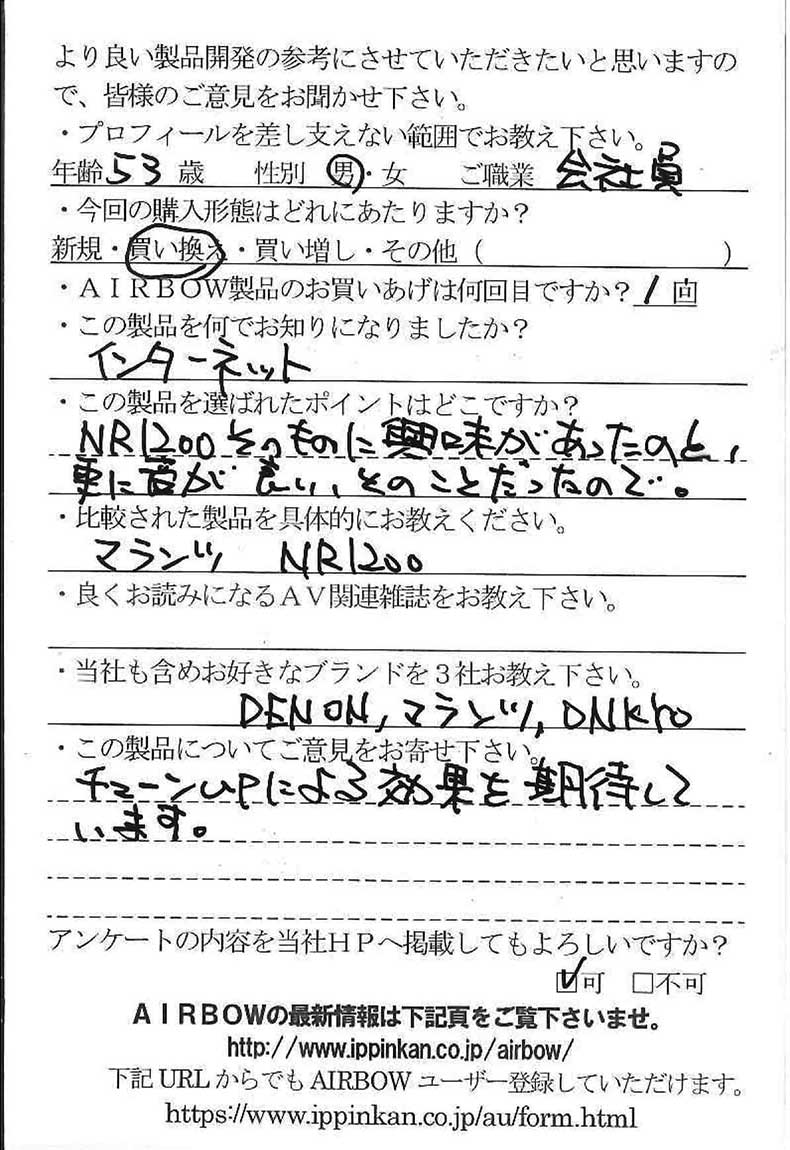 より良い製品開発の参考にさせていただきたいと思いますの
で、皆様のご意見をお聞かせ下さい。
・プロフィールを差し支えない範囲でお教え下さい。
年齢 53 歳 性別 男・女 ご職業 会社員
・今回の購入形態はどれにあたりますか？
新規・買い換え・買い増し・その他（ ）
・ＡＩＲＢＯＷ製品のお買いあげは何回目ですか？ 1 回
・この製品を何でお知りになりましたか？
インターネット
・この製品を選ばれたポイントはどこですか？
NR1200そのものに興味があったのと、
更に音が良い、そのことだったので。
・比較された製品を具体的にお教えください。
マランツ NR1200
・良くお読みになるＡＶ関連雑誌をお教え下さい。
・当社も含めお好きなブランドを３社お教え下さい。
DENON, マランツ, ONKYO
・この製品についてご意見をお寄せ下さい。
チューンUPによる効果を期待して
います。
アンケートの内容を当社ＨＰへ掲載してもよろしいですか？
☑可 □不可
ＡＩＲＢＯＷの最新情報は下記頁をご覧下さいませ。
http://www.ippinkan.co.jp/airbow/
下記 URL からでも AIRBOW ユーザー登録していただけます。
https://www.ippinkan.co.jp/au/form.html